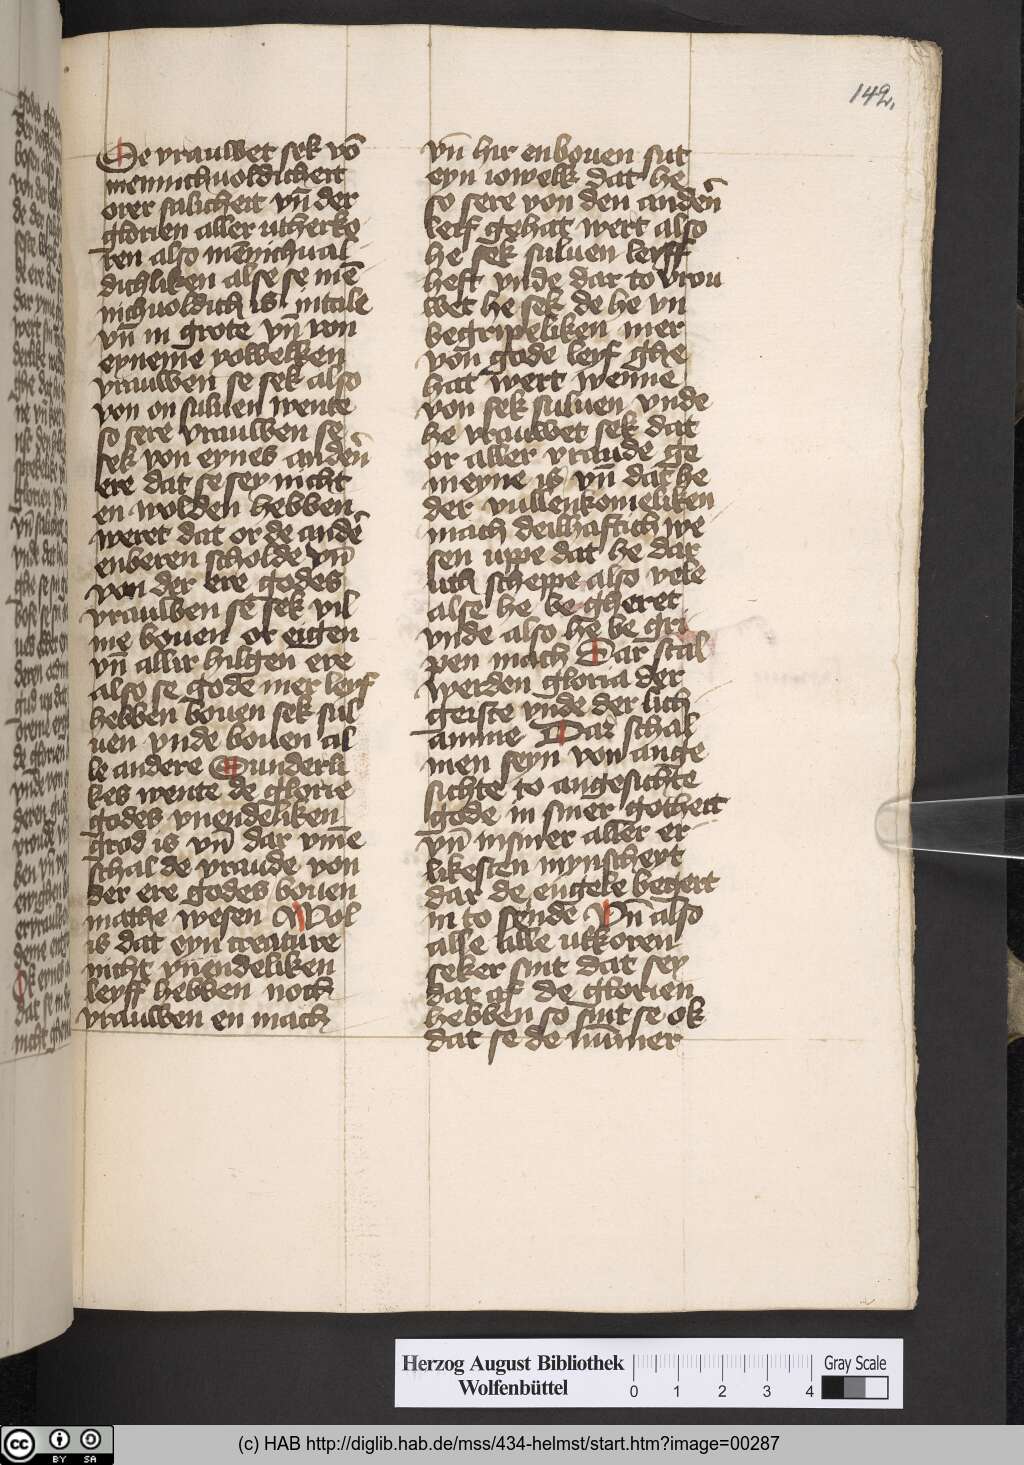 142.
Se vrauwet sek vō
mennichuoldicheit
orer salicheit vn̄ der
glorien aller utherko
ren also mēnichual
dichliken alse se mē
nichuoldich is in tale
vn̄ in grote vn̄ von
eyneme yowelken
vrauwen se sek also
von on suluen wente
so sere vrauwen se
sek von eynes andern̄
ere dat se sey nicht
en wolden hebben
weret dat or de andē
enberen scholde vn̄
von der ere godes
vrauwen se sek vil
me bouen or eigen
vn̄ aller hilgen ere
also se gode mer leyf
hebben bouen sek sul
uen vnde bouen al
le andere Sunderli
kes wente de glorie
godes vnendeliken
grod is vn̄ dar vm̄e
schal de vraude von
der ere godes bouen
mathe wesen Wol
is dat eyn creature
nicht vnendeliken
leyff hebben noch
vrauwen en mach
vn̄ hir enbouen sut
eyn iowelk dat he
so sere von den andern̄
leif gehat wert also
he sek suluen leyff
heft vnde dar to vrou
wet he sek de he vn
begripeliken mer
von gode leif ghe
hat wert wenne
von sek suluen vnde
he vrauwet sek dat
or aller vraude ge
meyne is vn̄ dat he
der vullenkomeliken
mach deilhaftich we
sen uppe dat he dar
uth scheppe also vele
alse he be gheret
vnde also he be gri
pen mach Dar schal
werden gloria der
geiste vnde der lich
amme Dar schal
men seyn von ange
sichte to angesichte
gode in siner gotheit
vn̄ in siner aller er
likesten mynscheyt
dar de engele begert
in to sende Vn̄ also
alle lille utkoren
seker sint dat sey
dar af de glorien
hebben so sint se ok
dat se de nūmer
Herzog August Bibliothek
Wolfenbüttel
0 1 2 3 4
Gray Scale
cc BY SA
(c) HAB http://diglib.hab.de/mss/434-helmst/start.htm?image=00287